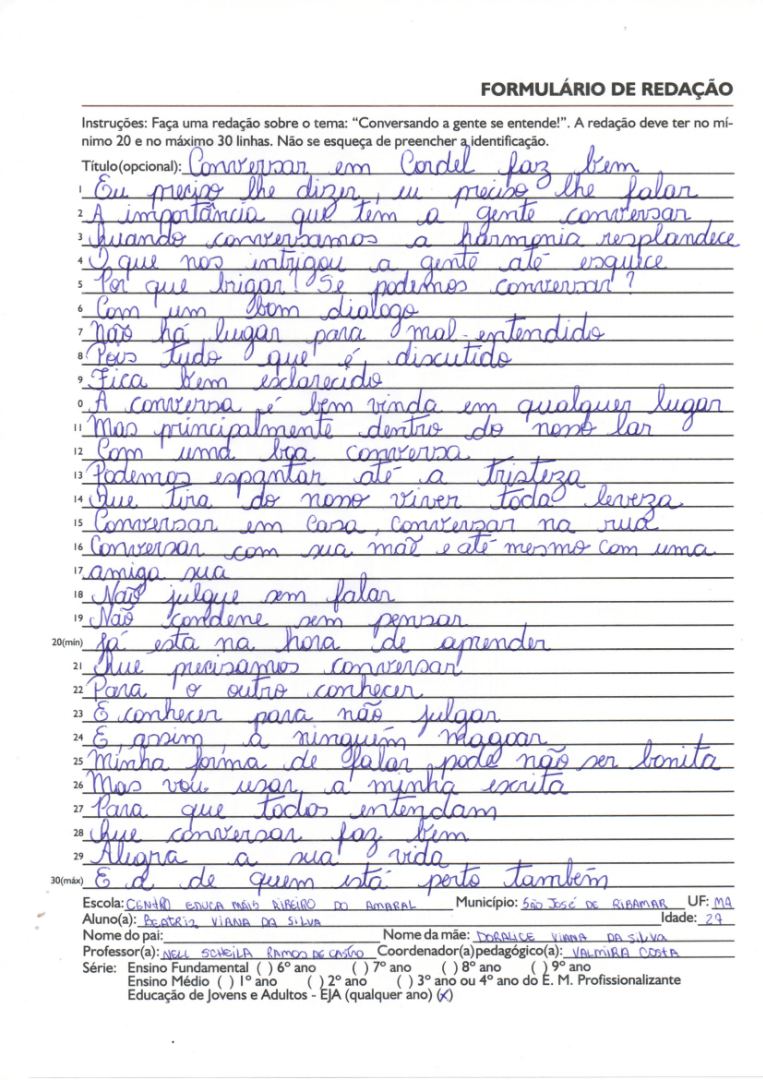 FORMULÁRIO DE REDAÇÃO
Instruções: Faça uma redação sobre o tema: “Conversando a gente se entende!”. A redação deve ter no mí-
nimo 20 e no máximo 30 linhas. Não se esqueça de preencher a identificação.
Título(opcional): Conversar em Cordel faz bem
1 Eu preciso lhe dizer, eu preciso lhe falar
2 A importância que tem a gente conversar
3 Quando conversamos a harmonia resplandece
4 O que nos intrigou a gente até esquece
5 Por que brigar! Se podemos conversar?
6 Com um bom dialogo
7 Não há lugar para mal-entendido
8 Pois tudo que é, discutido
9 Fica bem esclarecido
0 A conversa é bem vinda em qualquer lugar
11 Mas principalmente dentro do nosso lar
12 Com uma boa conversa
13 Podemos espantar até a tristeza
14 Que tira do nosso viver toda leveza
15 Conversar em casa, conversar na rua
16 Conversar com sua mãe e até mesmo com uma
17 amiga sua
18 Não julgue sem falar
19 Não condene sem pensar
20(mín) Já esta na hora de aprender
21 Que precisamos conversar
22 Para o outro conhecer
23 E conhecer para não julgar
24 E, assim, a ninguém magoar
25 Minha forma de falar pode não ser bonita
26 Mas vou usar a minha escrita
27 Para que todos entendam
28 Que conversar faz bem
29 Alegra a sua vida
30(máx) E a de quem está perto também
Escola: CENTRO EDUCA MAIS RIBEIRO DO AMARAL Município: SÃO JOSÉ DE RIBAMAR UF: MA
Aluno(a): BEATRIZ VIANA DA SILVA Idade: 27
Nome do pai: Nome da mãe: DORALICE VIANA DA SILVA
Professor(a): NELL SCHEILA RAMOS DE CASTRO Coordenador(a)pedagógico(a): VALMIRA COSTA
Série: Ensino Fundamental ( ) 6º ano ( ) 7º ano ( ) 8º ano ( ) 9º ano
Ensino Médio ( ) 1º ano ( ) 2º ano ( ) 3º ano ou 4º ano do E. M. Profissionalizante
Educação de Jovens e Adultos - EJA (qualquer ano) (x)